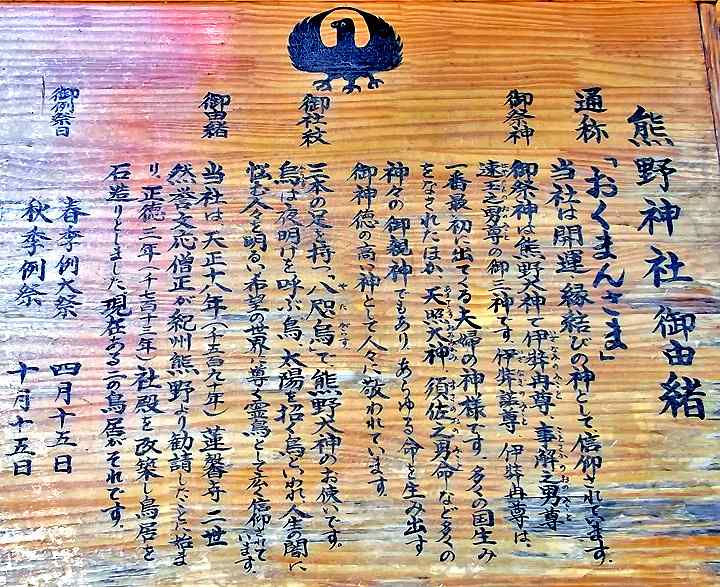 熊野神社 御由緒
通称「おくまんさま」
当社は開運 縁結びの神として、信仰されています。
御祭神
御祭神は熊野大神で伊弉冉尊、事解之男尊
速玉之男尊の御三神です。伊弉諾尊、伊弉冉尊は、
一番最初に出てくる夫婦の神様です。多くの国生み
をなされたほか、天照大神、須佐之男命など多くの
神々の御親神でもあり、あらゆる命を生み出す
御神徳の高い神として人々に敬われています。
御社紋
三本の足を持つ、八咫烏で熊野大神のお使いです。
烏は夜明けを呼ぶ鳥、太陽を招く鳥といわれ人生の闇に
悩む人々を明るい希望の世界に導く霊鳥として広く信仰されています。
御由緒
当社は天正十八年（千五百九十年）蓮馨寺 二世
然誉文応僧正が紀州熊野より勧請したことに始ま
り、正徳三年（千七百十三年）社殿を改築し鳥居を
石造りとしました。現在ある二の鳥居がそれです。
御例祭日
春季例大祭 四月十五日
秋季例祭 十月十五日